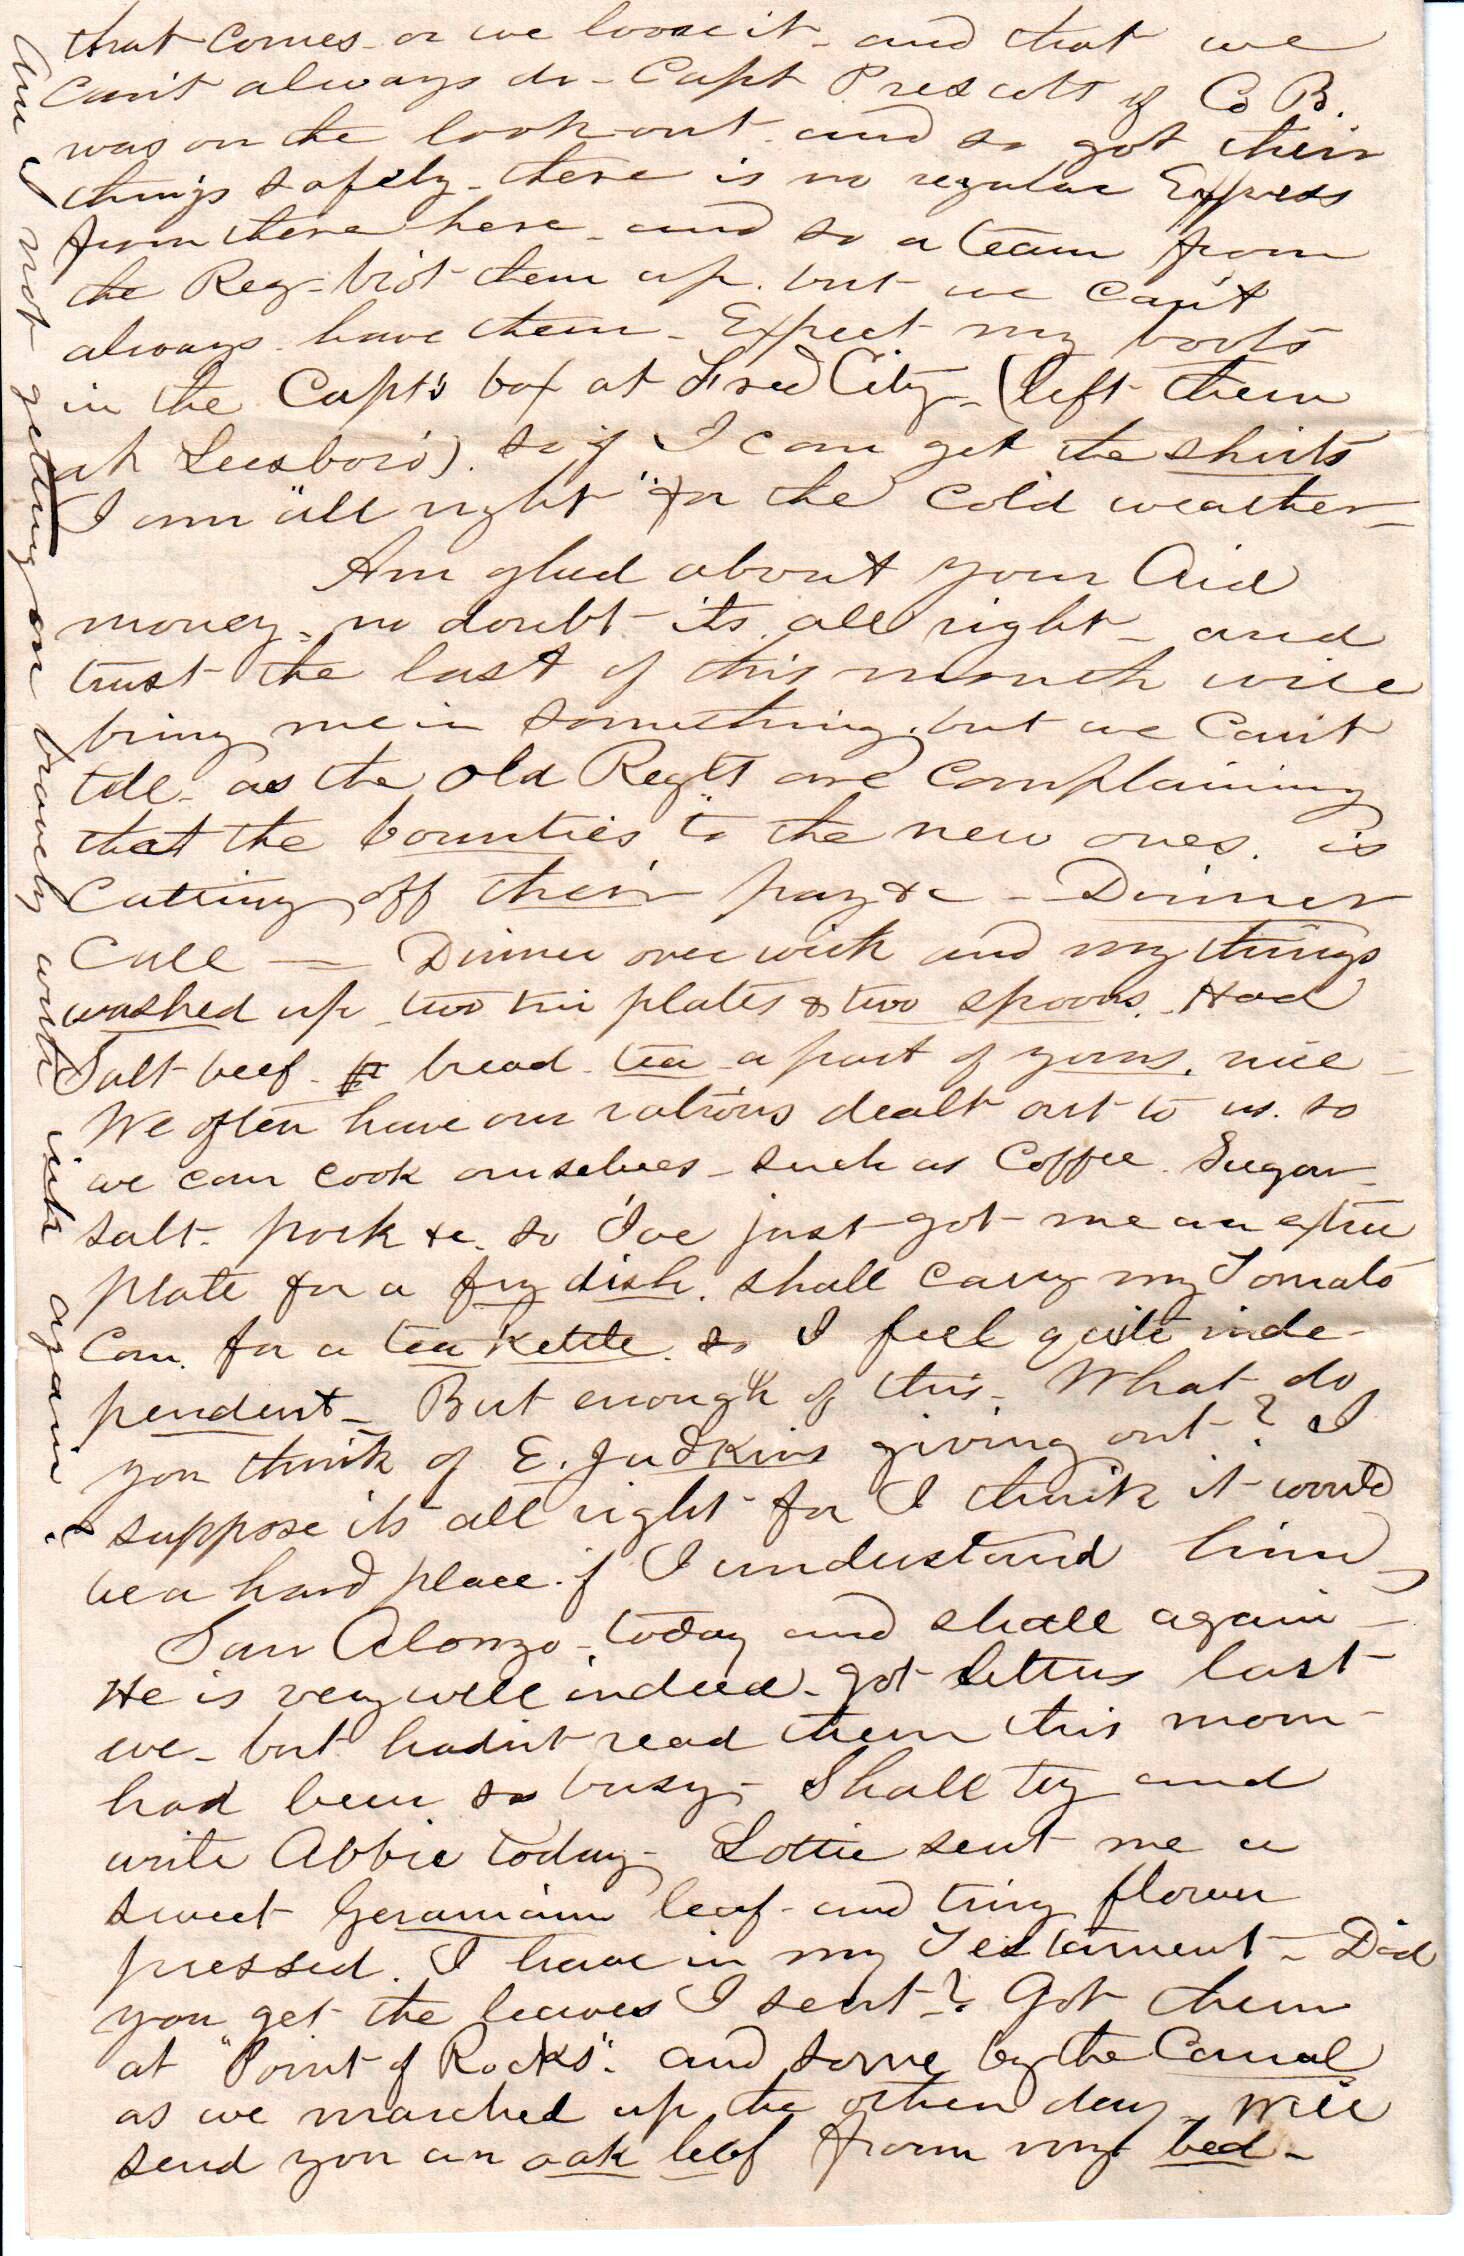 that comes - or we loose it - and that we
can't always do - Capt Prescott of Co B.
was on the look out - and so got their
things safely - there is no regular Express
from there here - and so a team from
the Reg - bro't them up. but we can't
always have them - Expect my boots
in the Capt's box at Fred City - (left them
at Leesboro'). so if I can get the shirts
I am "all right" for the cold weather -
Am glad about your Aid
money - no doubt its all right - and
trust the last of this month will
bring me in something, but we can't
tell - as the old Reg'ts are complaining
that the bounties to the new ones. is
cutting off their pay &c - Dinner
Call — Dinner over with and my things
washed up two tin plates & two spoons. Had
Salt beef - bread - tea - a part of yours. nice -
We often have our rations dealt out to us. so
we can cook ourselves - such as Coffee. Sugar -
salt - pork &c. so I've just got me an extra
plate for a fry dish. shall carry my Tomato
Can. for a tea kettle. so I feel quite inde-
pendent - But enough of this. What do
you think of E. Judkins giving out? I
suppose its all right - for I think it would
be a hard place. if I understand him -
Saw Alonzo - today and shall again -
He is very well indeed - got letters last
eve - but hadn't read them this morn -
had been so busy - Shall try and
write Abbie today - Lottie sent me a
sweet Geranium leaf - and tiny flower
pressed. I have in my Testament - Did
you get the leaves I sent? Got them
at "Point of Rocks". and some by the Canal
as we marched up the other day - Will
send you an oak leaf from my bed -
Am I not getting on bravely with ink again?